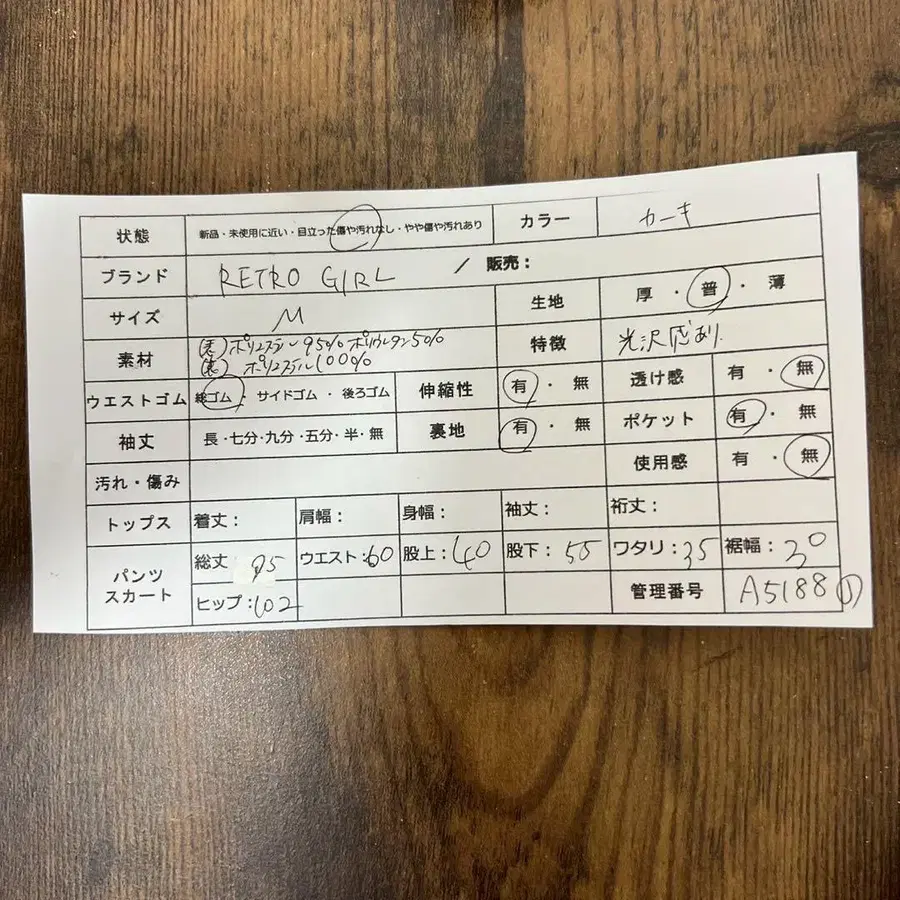 状態 新品・未使用に近い・目立った傷や汚れなし・やや傷や汚れあり カラー カーキ
ブランド RETRO GIRL / 販売:
サイズ M 生地 厚・普・薄
素材 (表)ポリエステル95% ポリウレタン5% 特徴 光沢感あり
(裏)ポリエステル100%
ウエストゴム 総ゴム・サイドゴム・後ろゴム 伸縮性 有・無 透け感 有・無
袖丈 長・七分・九分・五分・半・無 裏地 有・無 ポケット 有・無
汚れ・傷み 使用感 有・無
トップス 着丈: 肩幅: 身幅: 袖丈: 裄丈:
パンツ スカート 総丈 95 ウエスト:60 股上:40 股下:55 ワタリ:35 裾幅:30
ヒップ:102 管理番号 A5188